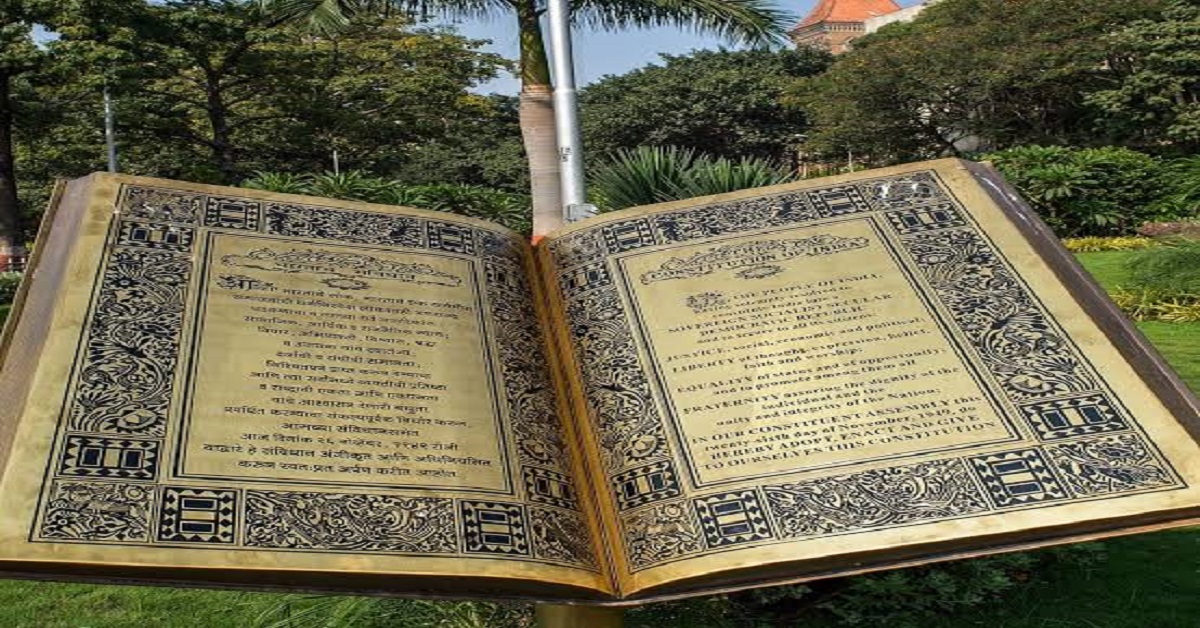 आम्ही, भारताचे लोक, भारताचे एक सार्वभौम
समाजवादी धर्मनिरपेक्ष लोकशाही गणराज्य
घडविण्याचा व त्याच्या सर्व नागरिकांस:
सामाजिक, आर्थिक व राजनैतिक न्याय;
विचार, अभिव्यक्ती, विश्वास, श्रद्धा
व उपासना यांचे स्वातंत्र्य;
दर्जाची व संधीची समानता;
निश्चितपणे प्राप्त करून देण्याचा
आणि त्या सर्वांमध्ये व्यक्तीची प्रतिष्ठा
व राष्ट्राची एकता आणि एकात्मता
यांचे आश्वासन देणारी बंधुता
प्रवर्धित करण्याचा संकल्पपूर्वक निर्धार करून;
आमच्या संविधानसभेत
आज दिनांक २६ नोव्हेंबर, १९४९ रोजी
याद्वारे हे संविधान अंगीकृत आणि अधिनियमित
करून स्वतःप्रत अर्पण करीत आहोत.
CONSTITUTION OF INDIA
WE, THE PEOPLE OF INDIA,
SOVEREIGN SOCIALIST
and to secure to all its citizens:
JUSTICE, social, economic and political;
LIBERTY of thought, expression, belief,
faith and worship;
EQUALITY of status and of opportunity;
and to promote among them all
FRATERNITY assuring the dignity of the
individual and the unity
and integrity of the Nation;
IN OUR CONSTITUENT ASSEMBLY this
twenty-sixth day of November, 1949, do
HEREBY ADOPT, ENACT AND GIVE
TO OURSELVES THIS CONSTITUTION